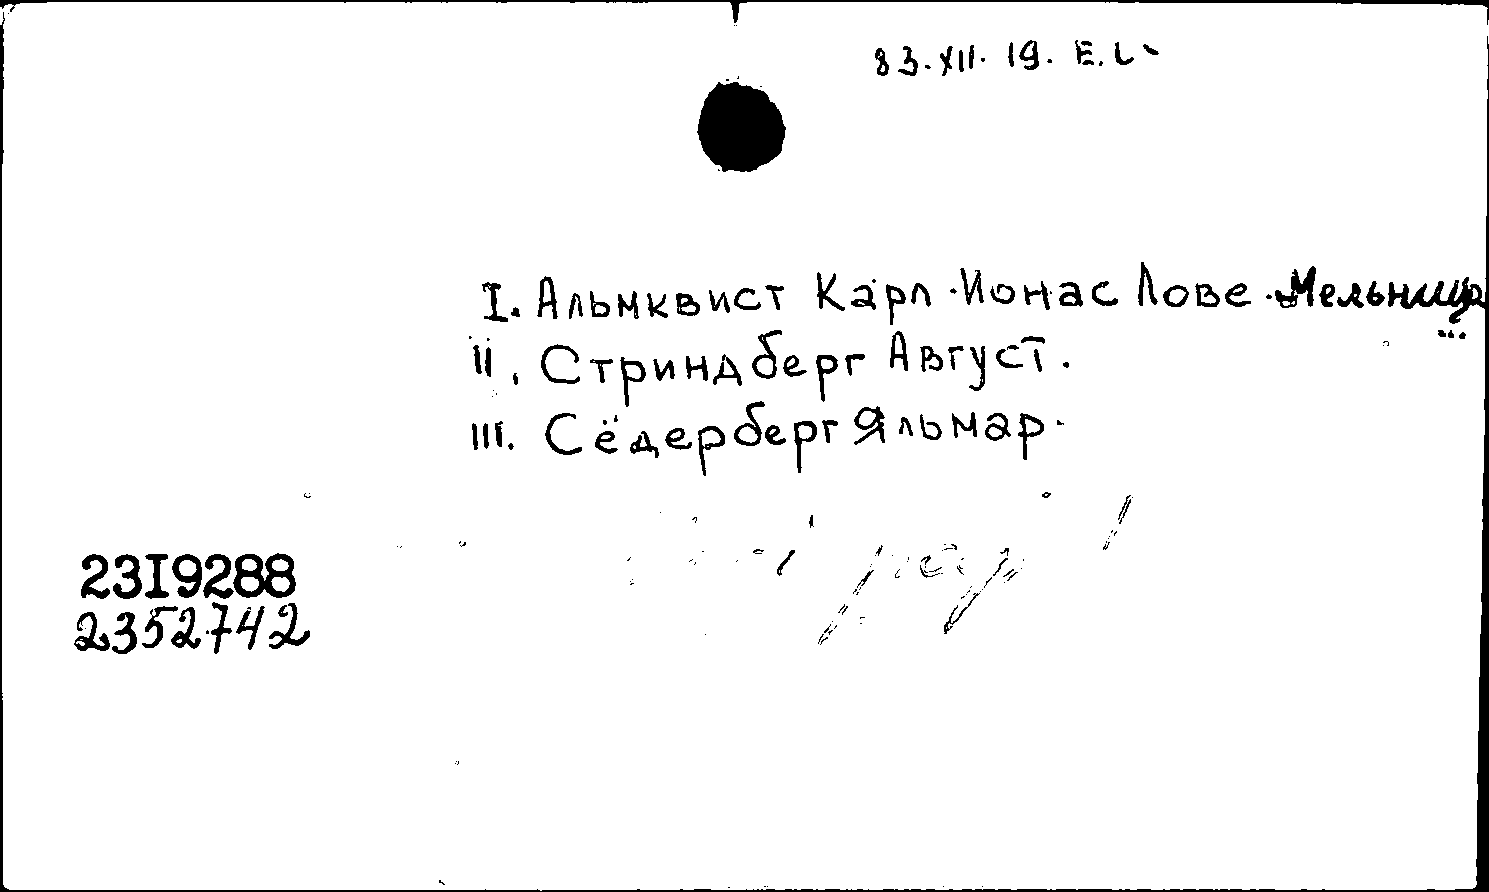 83.XII.19. E.L.
I. Альмквист Карл Ионас Лове. Мельница
...
II. Стриндберг Август.
III. Сёдерберг Яльмар.
23I9288
2352742